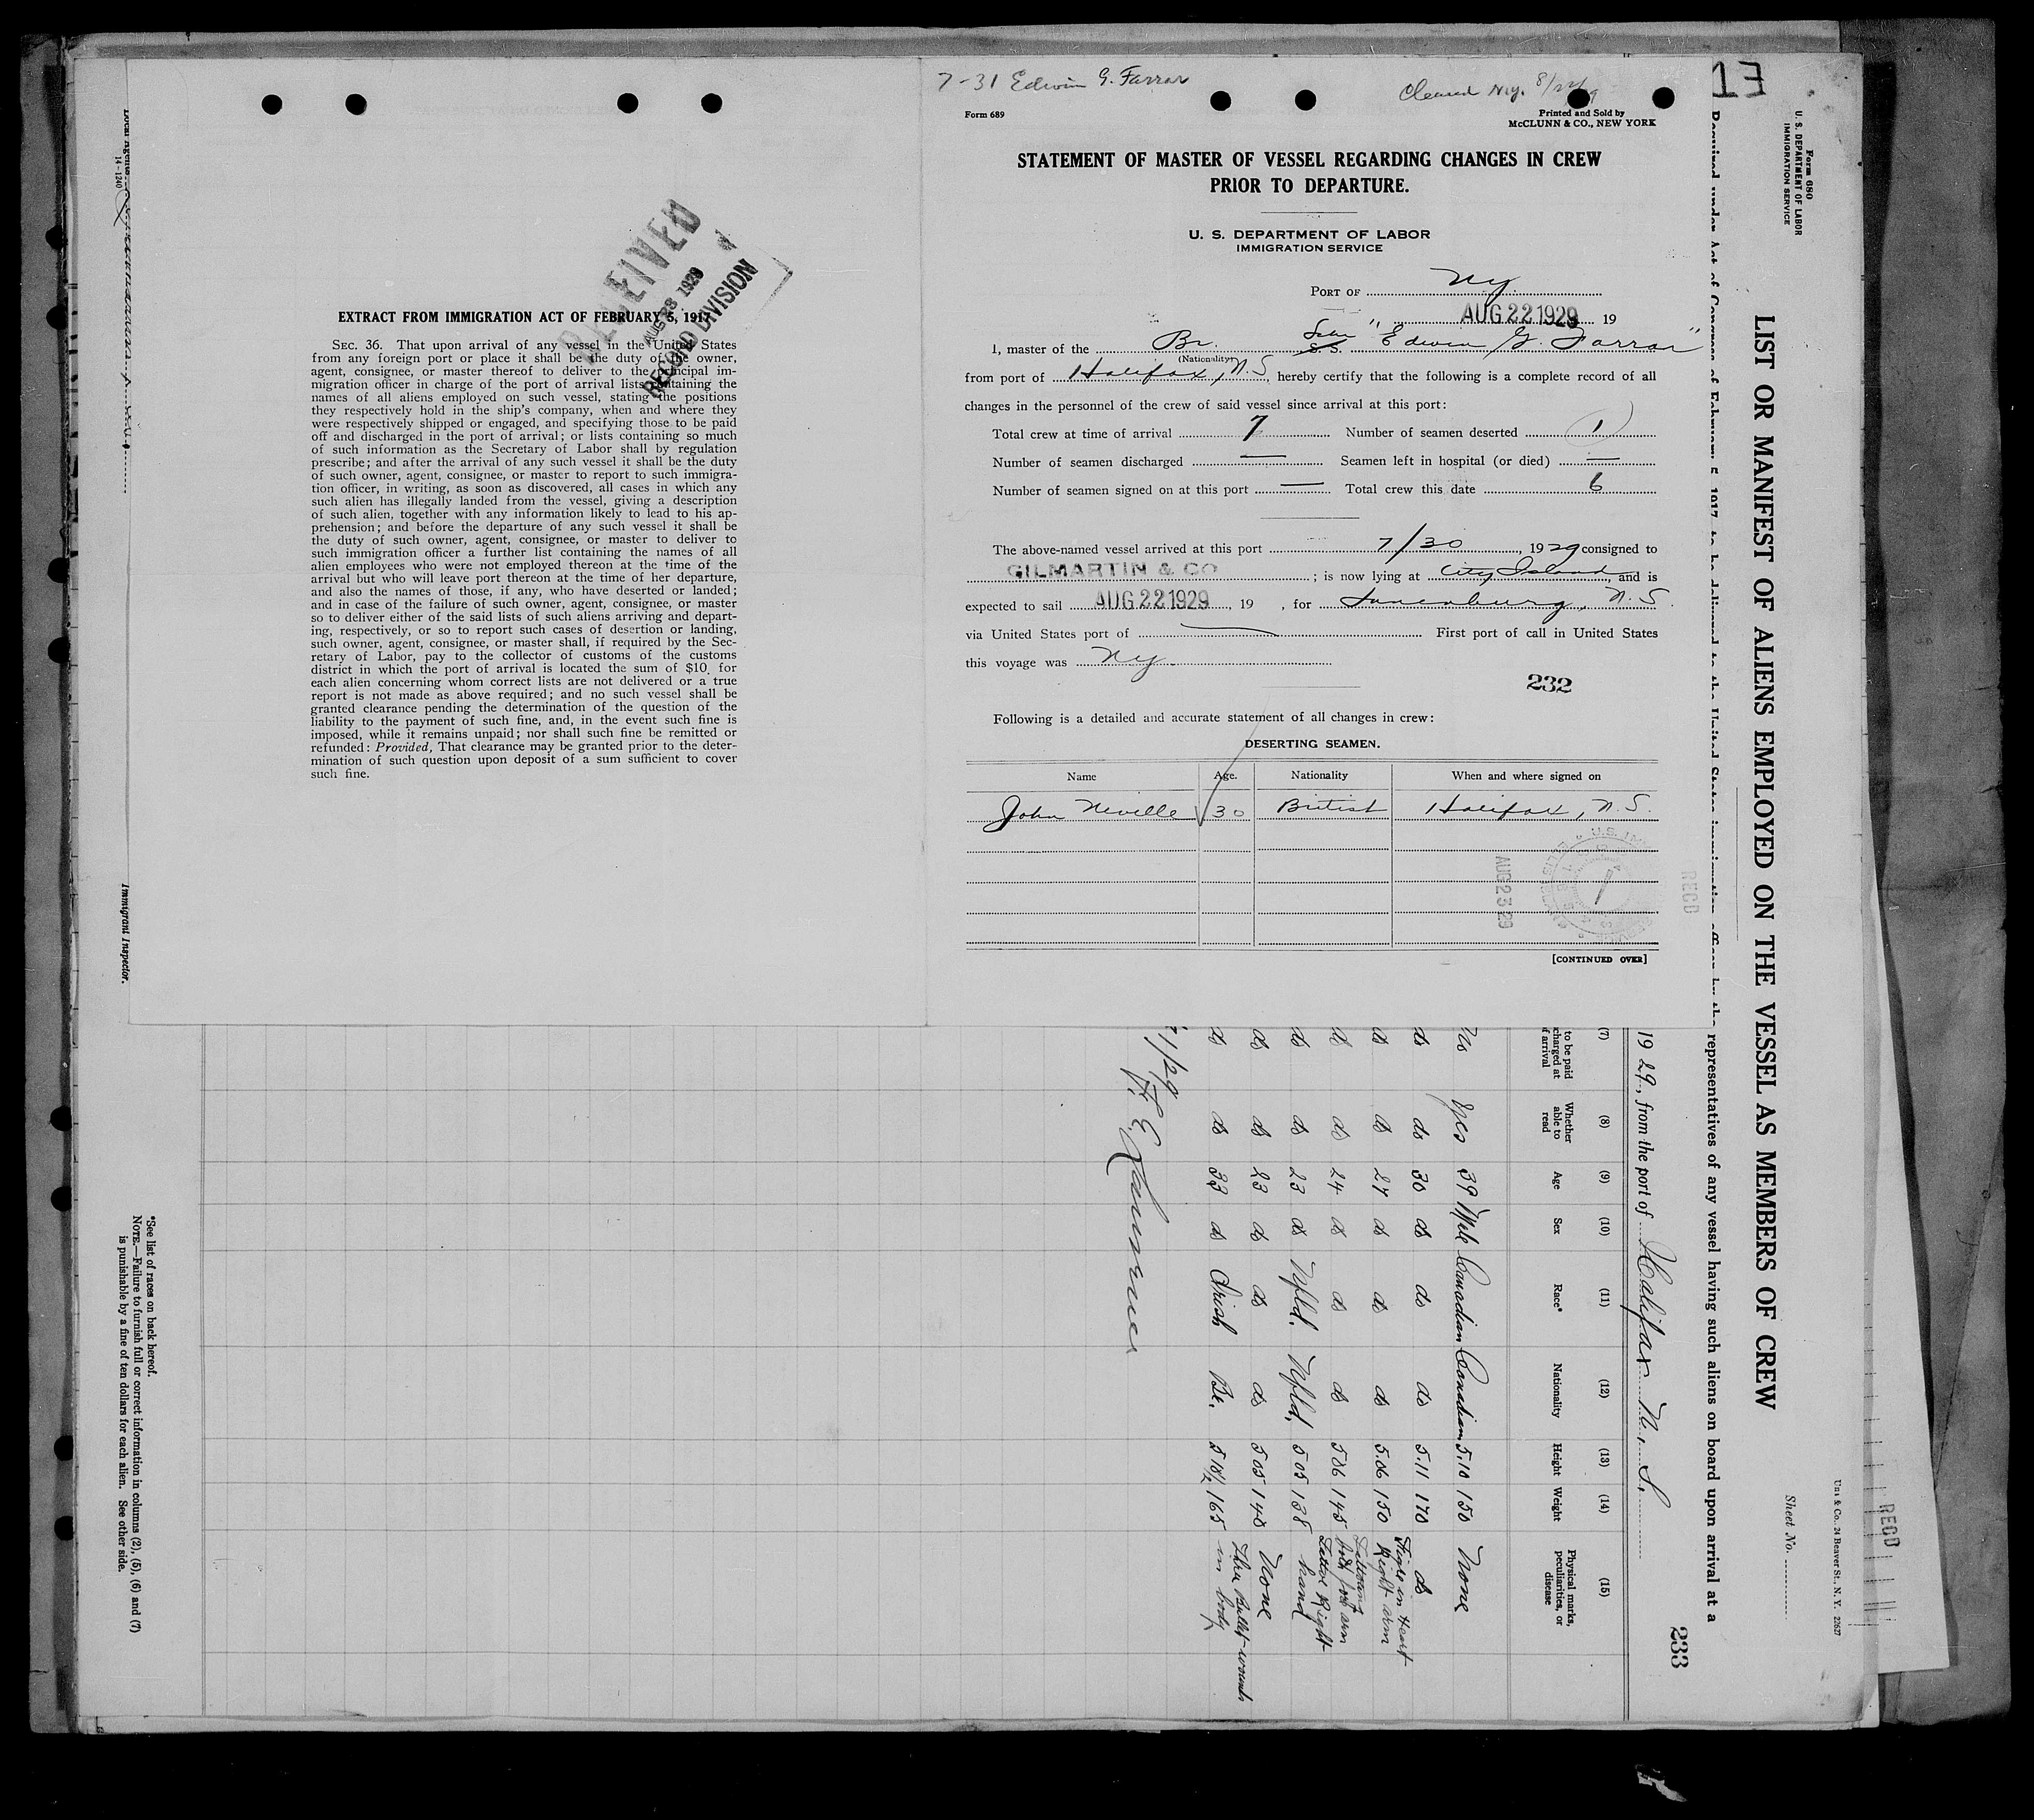 7-31 Edwin G. Farrar
Cleared Ny. 8/22/29
Form 689
Printed and Sold by
McCLUNN & CO., NEW YORK
STATEMENT OF MASTER OF VESSEL REGARDING CHANGES IN CREW
PRIOR TO DEPARTURE.
U. S. DEPARTMENT OF LABOR
IMMIGRATION SERVICE
PORT OF Ny.
AUG 22 1929 19
I, master of the Br. Sch S.S. "Edwin G. Farrar"
(Nationality)
from port of Halifax, N.S., hereby certify that the following is a complete record of all
changes in the personnel of the crew of said vessel since arrival at this port:
Total crew at time of arrival 7 Number of seamen deserted 1
Number of seamen discharged — Seamen left in hospital (or died) —
Number of seamen signed on at this port — Total crew this date 6
The above-named vessel arrived at this port 7/30, 1929 consigned to
GILMARTIN & CO; is now lying at City Island, and is
expected to sail AUG 22 1929, 19 , for Lunenburg, N.S.
via United States port of — First port of call in United States
this voyage was Ny.
232
Following is a detailed and accurate statement of all changes in crew:
DESERTING SEAMEN.
Name Age. Nationality When and where signed on
John Neville 30 British Halifax, N.S.
AUG 23 29
[CONTINUED OVER]
RECEIVED
AUG 28 1929
RECORD DIVISION
EXTRACT FROM IMMIGRATION ACT OF FEBRUARY 5, 1917.
SEC. 36. That upon arrival of any vessel in the United States
from any foreign port or place it shall be the duty of the owner,
agent, consignee, or master thereof to deliver to the principal im-
migration officer in charge of the port of arrival lists containing the
names of all aliens employed on such vessel, stating the positions
they respectively hold in the ship's company, when and where they
were respectively shipped or engaged, and specifying those to be paid
off and discharged in the port of arrival; or lists containing so much
of such information as the Secretary of Labor shall by regulation
prescribe; and after the arrival of any such vessel it shall be the duty
of such owner, agent, consignee, or master to report to such immigra-
tion officer, in writing, as soon as discovered, all cases in which any
such alien has illegally landed from the vessel, giving a description
of such alien, together with any information likely to lead to his ap-
prehension; and before the departure of any such vessel it shall be
the duty of such owner, agent, consignee, or master to deliver to
such immigration officer a further list containing the names of all
alien employees who were not employed thereon at the time of the
arrival but who will leave port thereon at the time of her departure,
and also the names of those, if any, who have deserted or landed;
and in case of the failure of such owner, agent, consignee, or master
so to deliver either of the said lists of such aliens arriving and depart-
ing, respectively, or so to report such cases of desertion or landing,
such owner, agent, consignee, or master shall, if required by the Sec-
retary of Labor, pay to the collector of customs of the customs
district in which the port of arrival is located the sum of $10 for
each alien concerning whom correct lists are not delivered or a true
report is not made as above required; and no such vessel shall be
granted clearance pending the determination of the question of the
liability to the payment of such fine, and, in the event such fine is
imposed, while it remains unpaid; nor shall such fine be remitted or
refunded: Provided, That clearance may be granted prior to the deter-
mination of such question upon deposit of a sum sufficient to cover
such fine.
Form 680
U. S. DEPARTMENT OF LABOR
IMMIGRATION SERVICE
Sheet No.
LIST OR MANIFEST OF ALIENS EMPLOYED ON THE VESSEL AS MEMBERS OF CREW
representatives of any vessel having such aliens on board upon arrival at a
RECD
233
1929, from the port of Halifax N. S.
(7) (8) (9) (10) (11) (12) (13) (14) (15)
to be paid Whether able to read Age Sex Race* Nationality Height Weight Physical marks, peculiarities, or disease
Yes 39 Male Canadian Canadian 5.10 150 None
do do 30 do do do 5.11 170 do
do do 27 do do do 5.06 150 Right arm
do do 24 do do do 506 145
do do 23 do Nfld. Nfld. 505 138 Right hand
do do 23 do do do 505 140 None
do do 33 do Irish Br. 165 Three Bullet wounds in body
Immigrant Inspector.
14-1240
*See list of races on back hereof.
NOTE.—Failure to furnish full or correct information in columns (2), (5), (6) and (7)
is punishable by a fine of ten dollars for each alien. See other side.